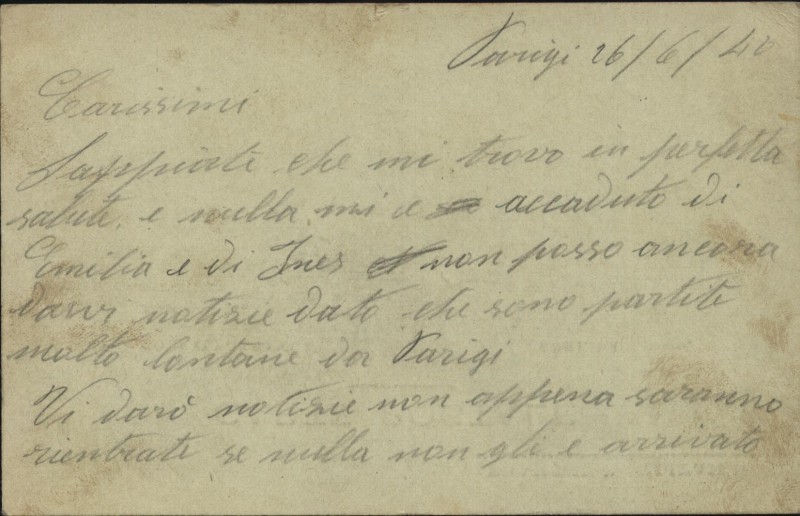 Parigi 26/6/40
Carissimi
Sappiate che mi trovo in perfetta
salute e nulla mi e accaduto di
Emilia e di Ines non posso ancora
darvi notizie dato che sono partite
molto lontane da Parigi
Vi darò notizie non appena saranno
rientrate se nulla non gli e arrivato